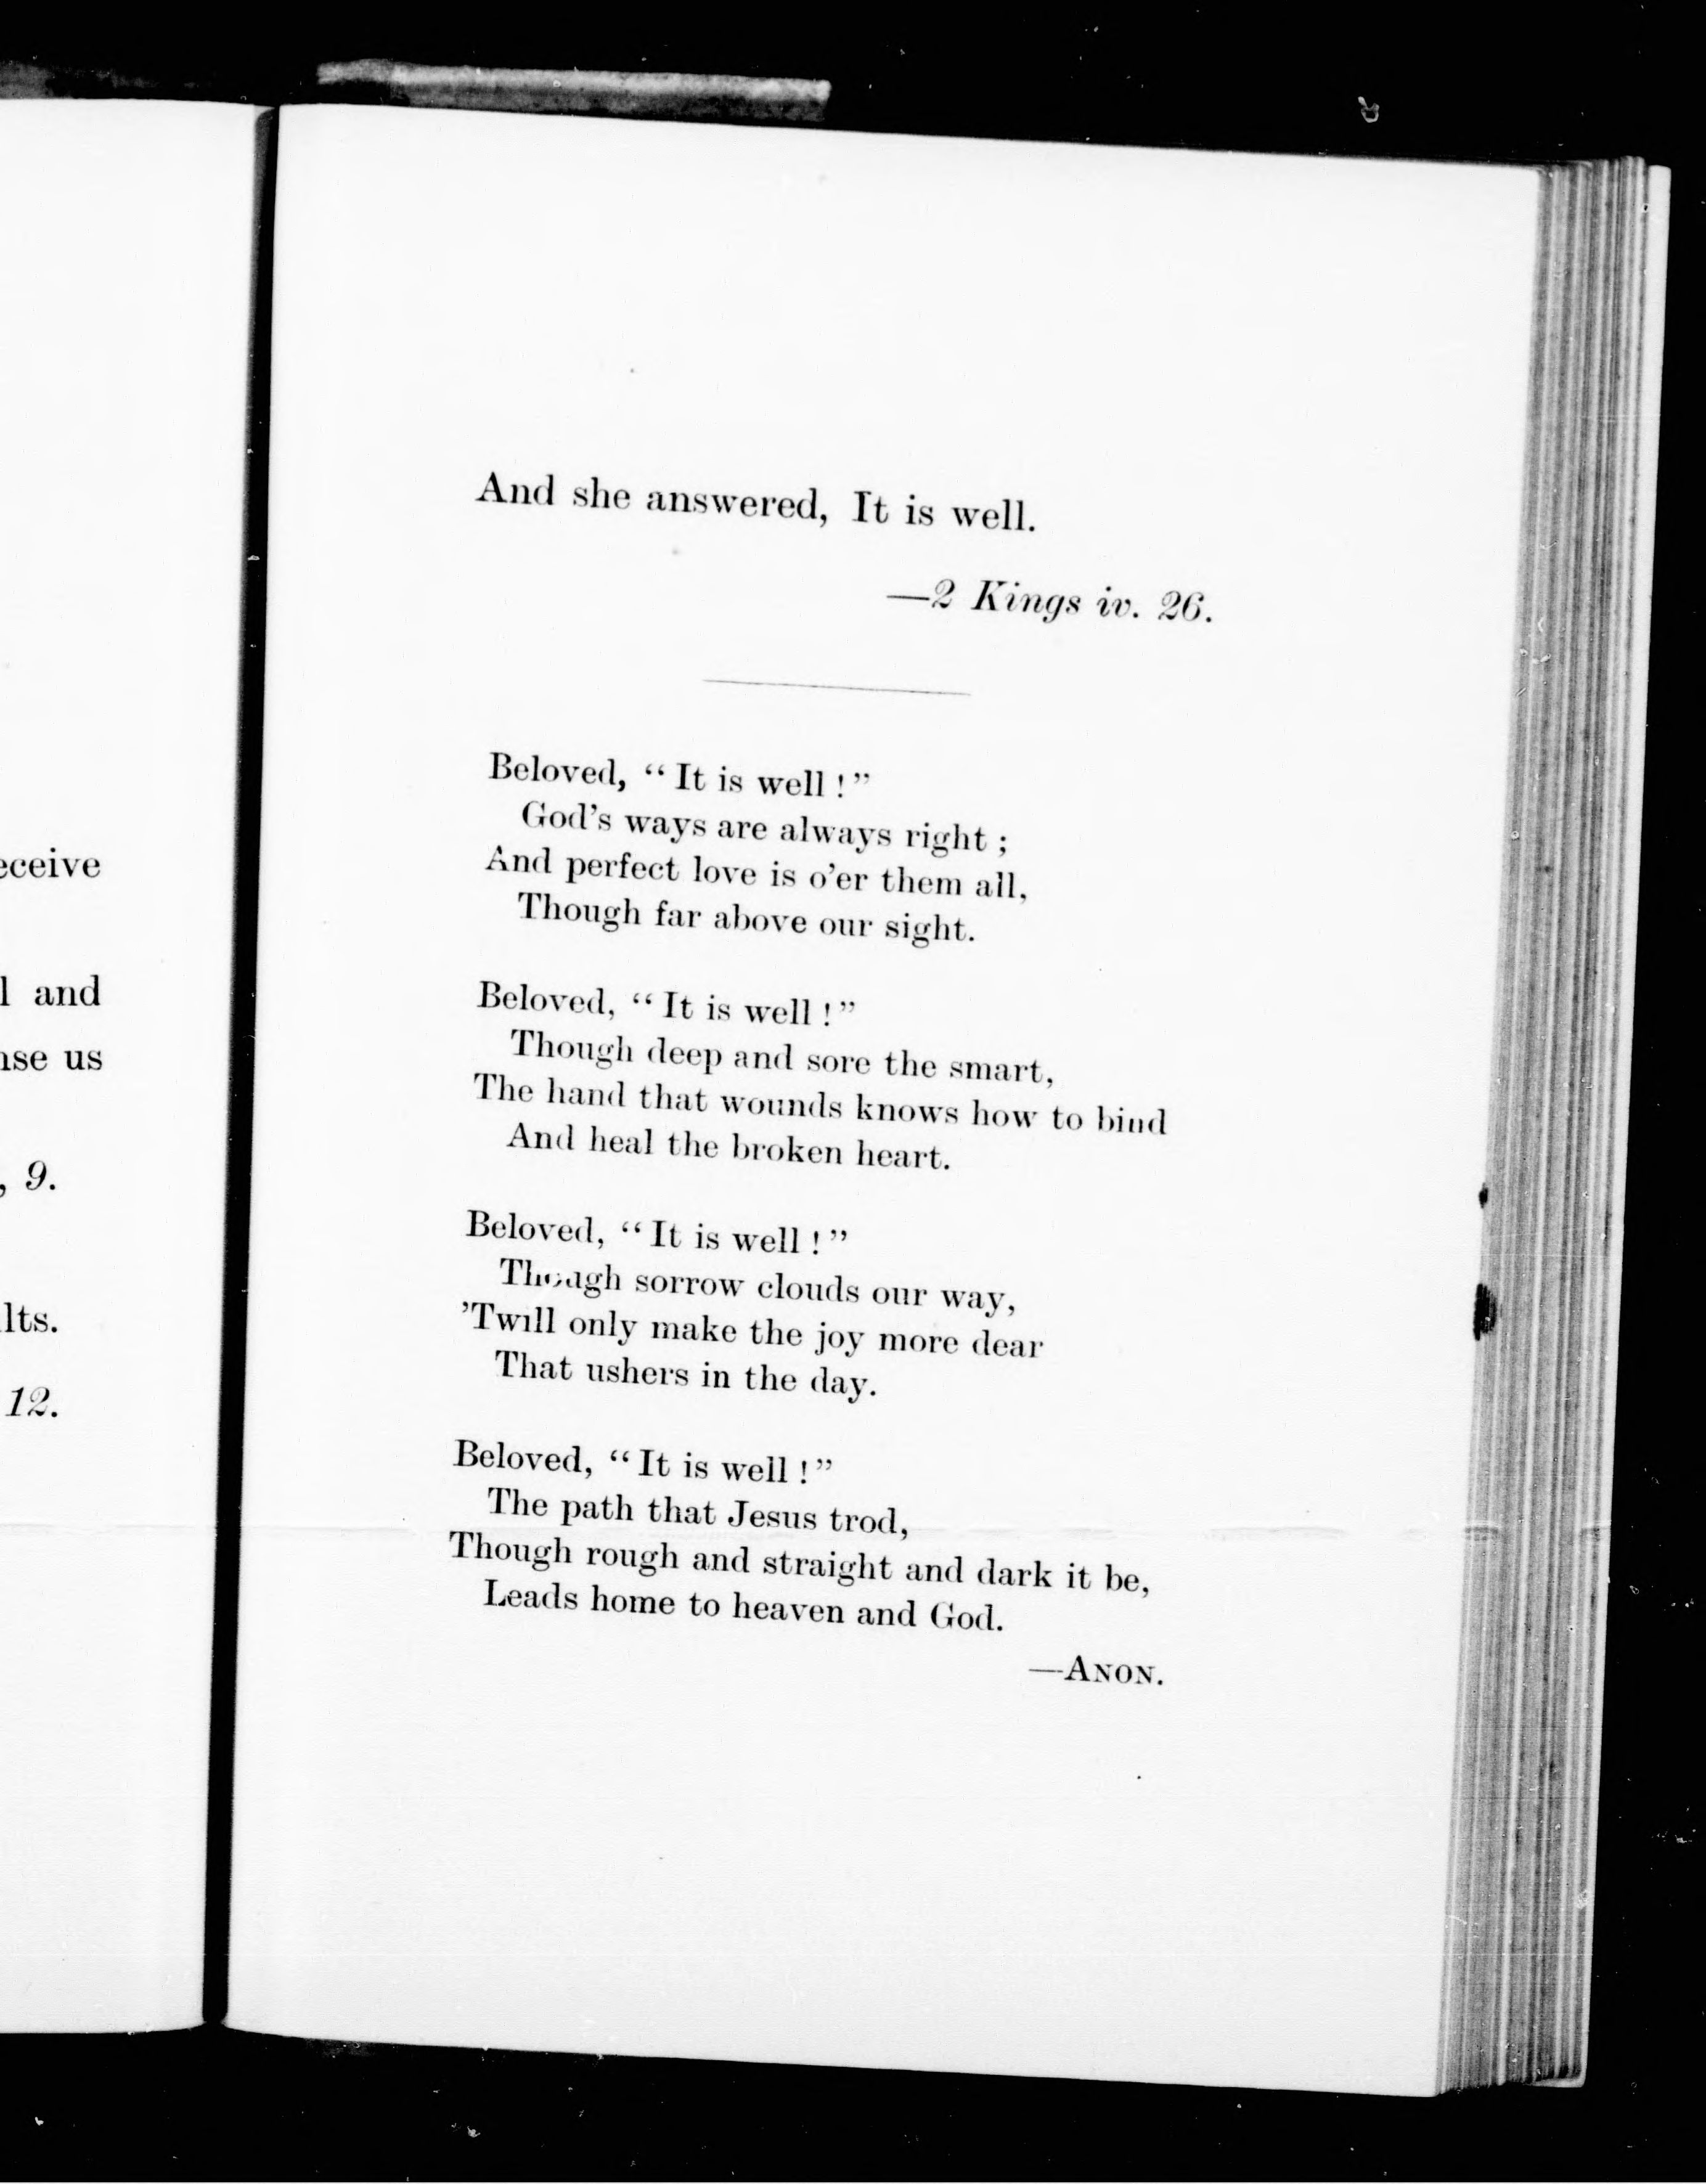 eceive
l and
nse us
, 9.
lts.
12.
And she answered, It is well.
—2 Kings iv. 26.
Beloved, “It is well!”
God’s ways are always right;
And perfect love is o’er them all,
Though far above our sight.
Beloved, “It is well!”
Though deep and sore the smart,
The hand that wounds knows how to bind
And heal the broken heart.
Beloved, “It is well!”
Though sorrow clouds our way,
’Twill only make the joy more dear
That ushers in the day.
Beloved, “It is well!”
The path that Jesus trod,
Though rough and straight and dark it be,
Leads home to heaven and God.
—ANON.